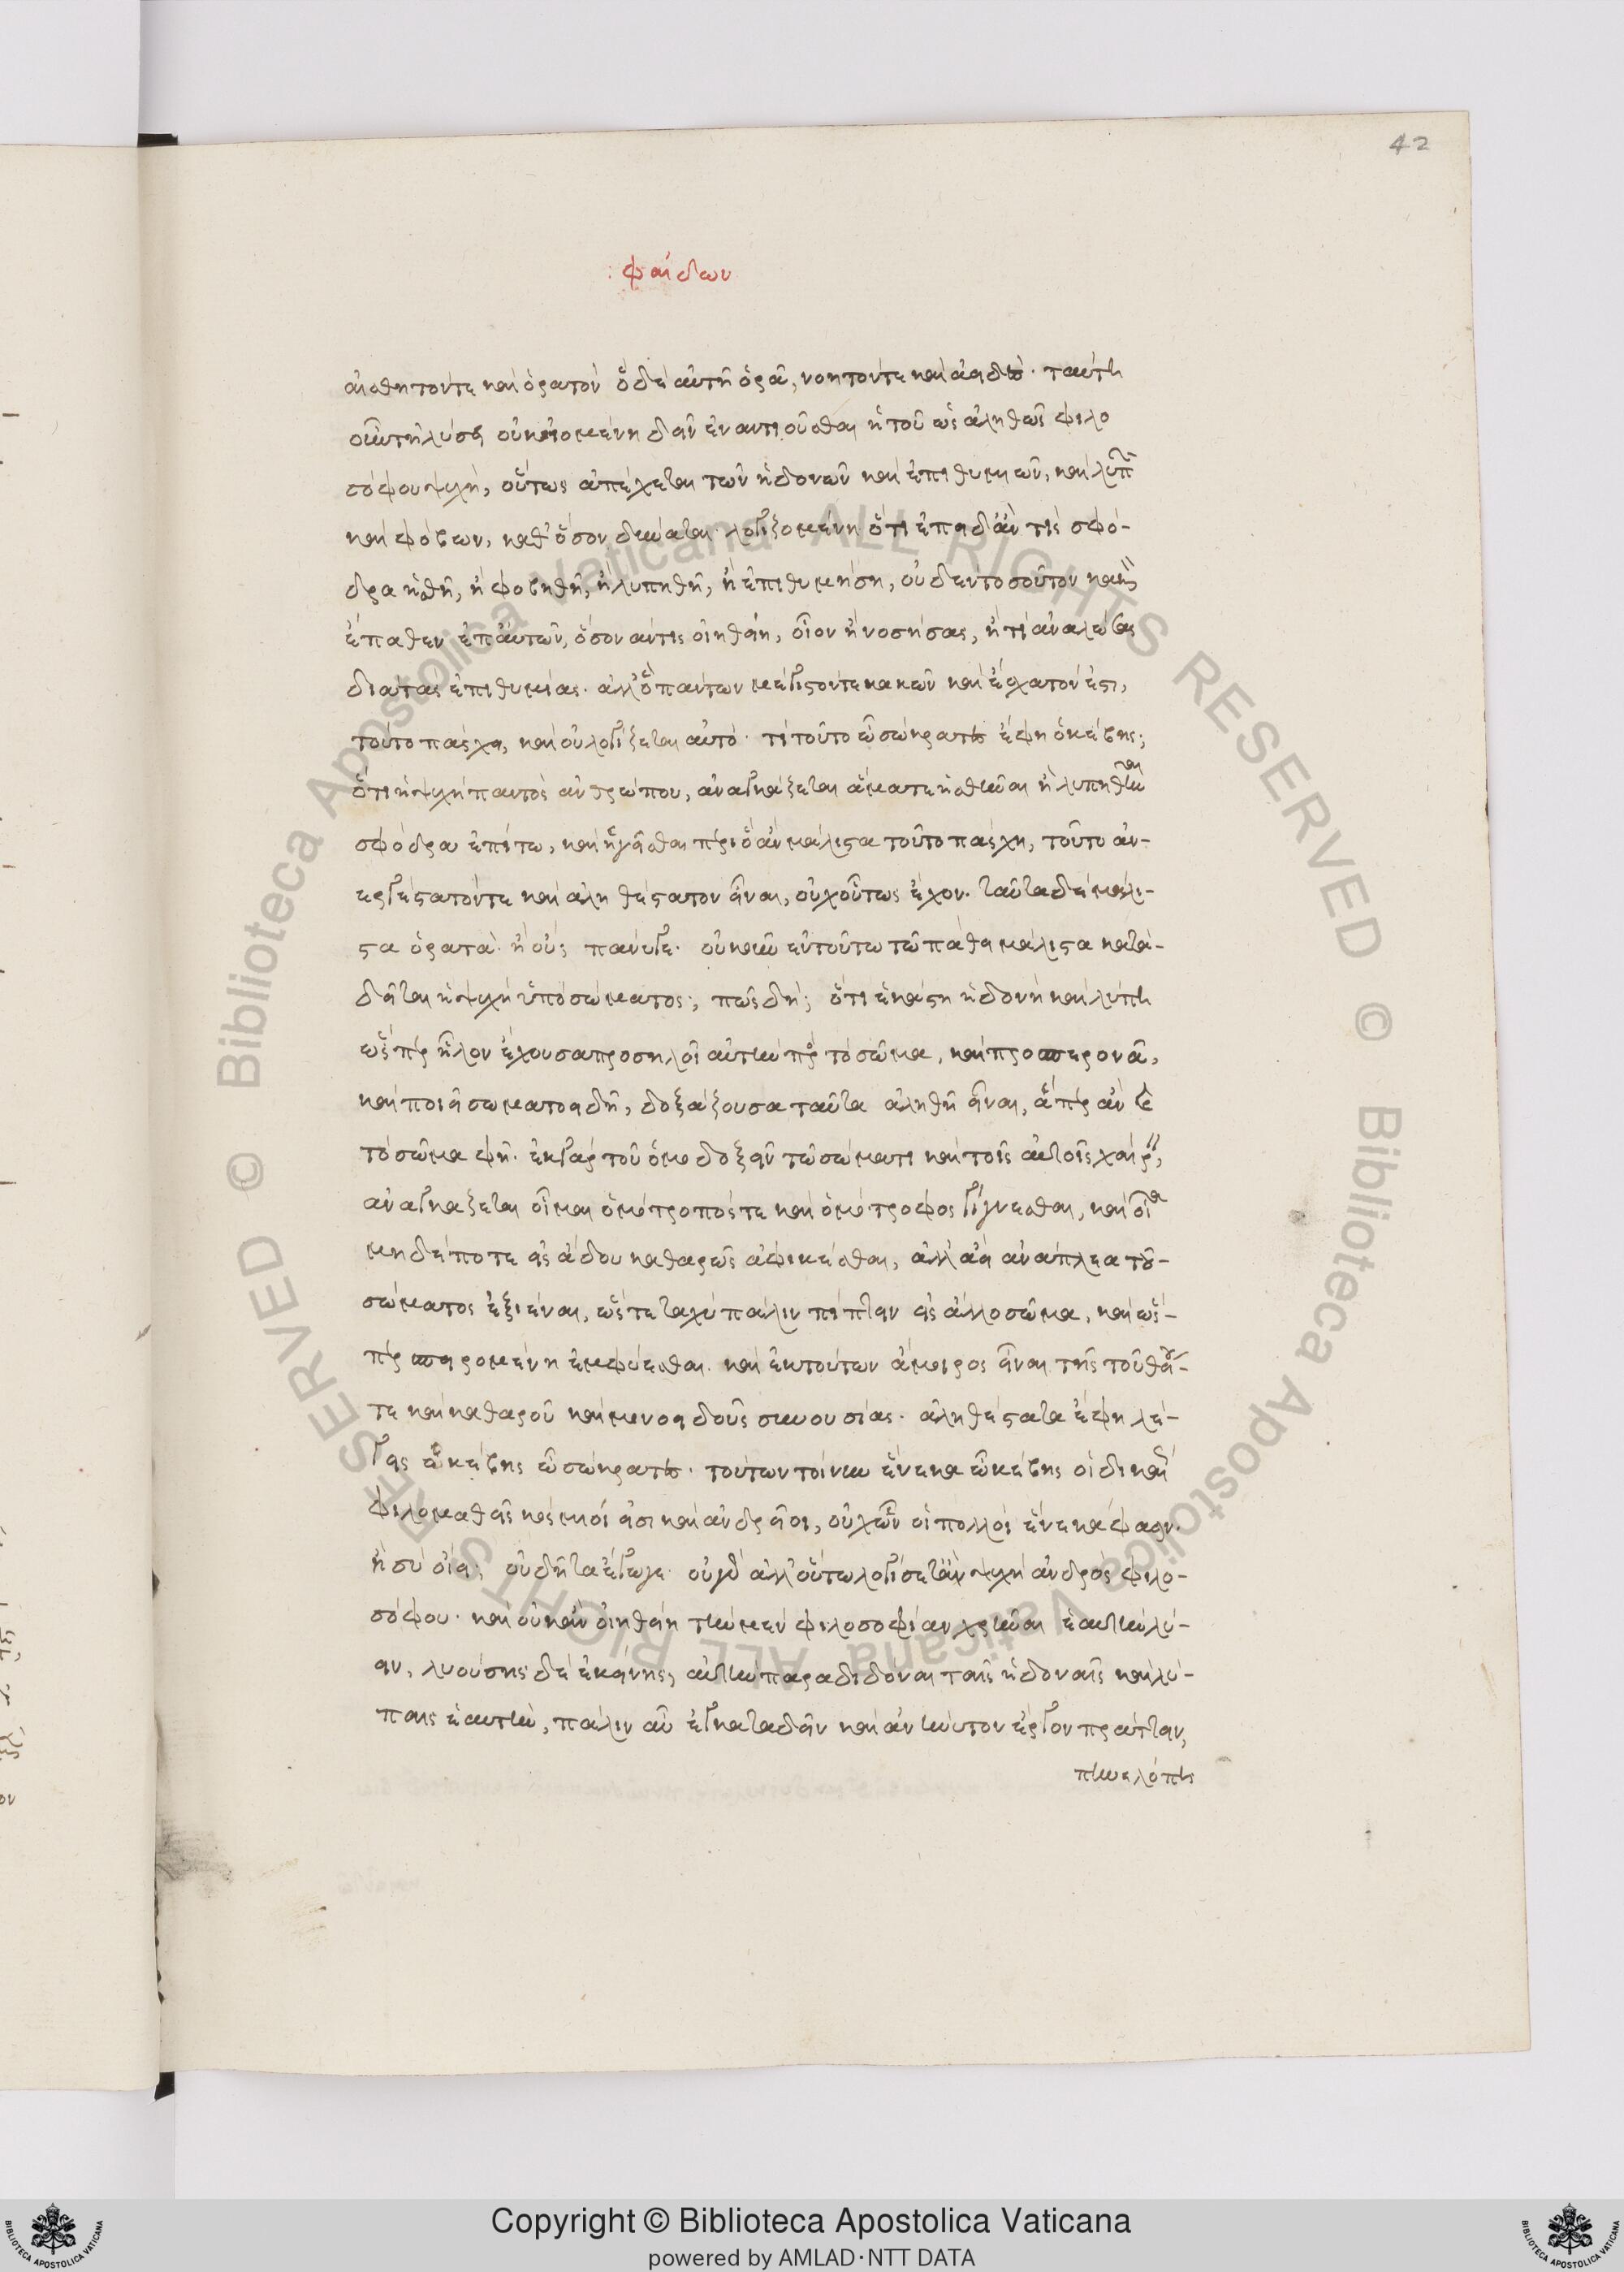 42
: φαίδων
αἰσθητόν τε καὶ ὁρατόν· ὃ δὲ αὐτὴ ὁρᾶ, νοητόν τε καὶ ἀειδές. ταύτη
οὖν τῆ λύσει οὐκ οἰομένη δεῖν ἐναντιοῦσθαι ἡ τοῦ ὡς ἀληθῶς φιλο
σόφου ψυχὴ, οὕτως ἀπέχεται τῶν ἡδονῶν καὶ ἐπιθυμιῶν, καὶ λυπῶν
καὶ φόβων, καθ' ὅσον δύναται· λογιζομένη ὅτι ἐπειδάν τις σφό-
δρα ἡσθῆ, ἢ φοβηθῆ, ἢ λυπηθῆ, ἢ ἐπιθυμήση, οὐδὲν τοσοῦτον κακὸν
ἔπαθεν ἀπ' αὐτῶν, ὅσον ἄν τις οἰηθείη, οἷον ἢ νοσήσας, ἤ τι ἀναλώσας
διὰ τὰς ἐπιθυμίας. ἀλλ' ὃ πάντων μέγιστόν τε κακῶν καὶ ἔσχατόν ἐστι,
τοῦτο πάσχει, καὶ οὐ λογίζεται αὐτό. τί τοῦτο ὦ σώκρατες ἔφη ὁ κέβης;
ὅτι ἡ ψυχὴ παντὸς ἀνθρώπου, ἀναγκάζεται ἅμα τε ἡσθῆναι ἢ λυπηθῆναι
σφόδρα ἐπί τω, καὶ ἡγεῖσθαι περὶ ὃ ἂν μάλιστα τοῦτο πάσχη, τοῦτο ἐν-
εργέστατόν τε καὶ ἀληθέστατον εἶναι, οὐχ οὕτως ἔχον. ταῦτα δὲ μάλι-
στα ὁρατὰ· ἢ οὔ; πάνυ γε. οὐκοῦν ἐν τούτω τῶ πάθει μάλιστα κατα-
δεῖται ἡ ψυχὴ ὑπὸ σώματος; πῶς δή; ὅτι ἑκάστη ἡδονὴ καὶ λύπη
ὥσπερ ἧλον ἔχουσα προσηλοῖ αὐτὴν πρὸς τὸ σῶμα, καὶ προσπερονᾶ,
καὶ ποιεῖ σωματοειδῆ, δοξάζουσα ταῦτα ἀληθῆ εἶναι, ἅπερ ἂν καὶ
τὸ σῶμα φῆ. ἐκ γὰρ τοῦ ὁμοδοξεῖν τῶ σώματι καὶ τοῖς αὐτοῖς χαίρειν,
ἀναγκάζεται οἶμαι ὁμότροπός τε καὶ ὁμότροφος γίγνεσθαι, καὶ οἵα
μηδέποτε εἰς ἅδου καθαρῶς ἀφικέσθαι, ἀλλ' ἀεὶ ἀνάπλεα τοῦ-
σώματος ἐξιέναι, ὥστε ταχὺ πάλιν πίπτειν εἰς ἄλλο σῶμα, καὶ ὥσ-
περ σπειρομένη ἐμφύεσθαι. καὶ ἐκ τούτων ἄμοιρος εἶναι τῆς τοῦ θείου-
τε καὶ καθαροῦ καὶ μονοειδοῦς συνουσίας. ἀληθέστατα ἔφη λέ-
γεις ὁ κέβης ὦ σώκρατες. τούτων τοίνυν ἕνεκα ὦ κέβης οἱ δικαίως
φιλομαθεῖς κόσμιοί εἰσι καὶ ἀνδρεῖοι, οὐχ ὧν οἱ πολλοὶ ἕνεκά φασιν.
ἢ σὺ οἴει; οὐ δῆτα ἔγωγε. οὐ γὰρ ἀλλ' οὕτω λογίσαιτ' ἂν ψυχὴ ἀνδρὸς φιλο-
σόφου. καὶ οὐκ ἂν οἰηθείη τὴν μὲν φιλοσοφίαν χρῆναι ἑαυτὴν λύ-
ειν, λυούσης δὲ ἐκείνης, αὐτὴν παραδιδόναι ταῖς ἡδοναῖς καὶ λύ-
παις ἑαυτὴν, πάλιν αὖ ἐγκαταδεῖν καὶ ἀνήνυτον ἔργον πράττειν,
πηνελόπης